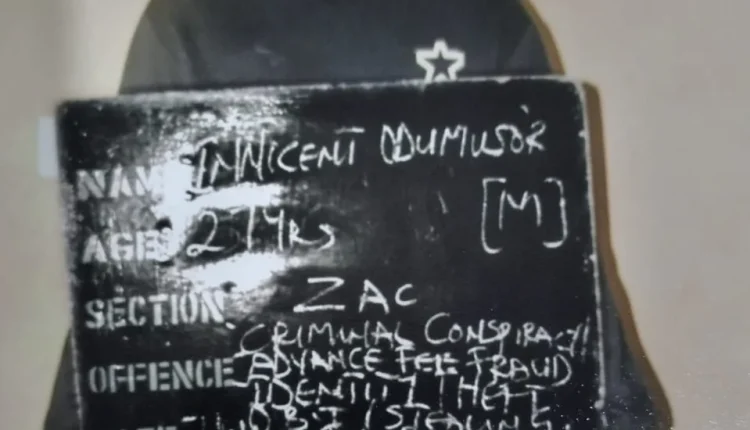 NAM INNICENT ODUMUSOR
AGE 27YRS [M]
SECTION ZAC
CRIMINAL CONSPIRACY/
OFFENCE ADVANCE FEE FRAUD
IDENTITI THEFT
STEALING.